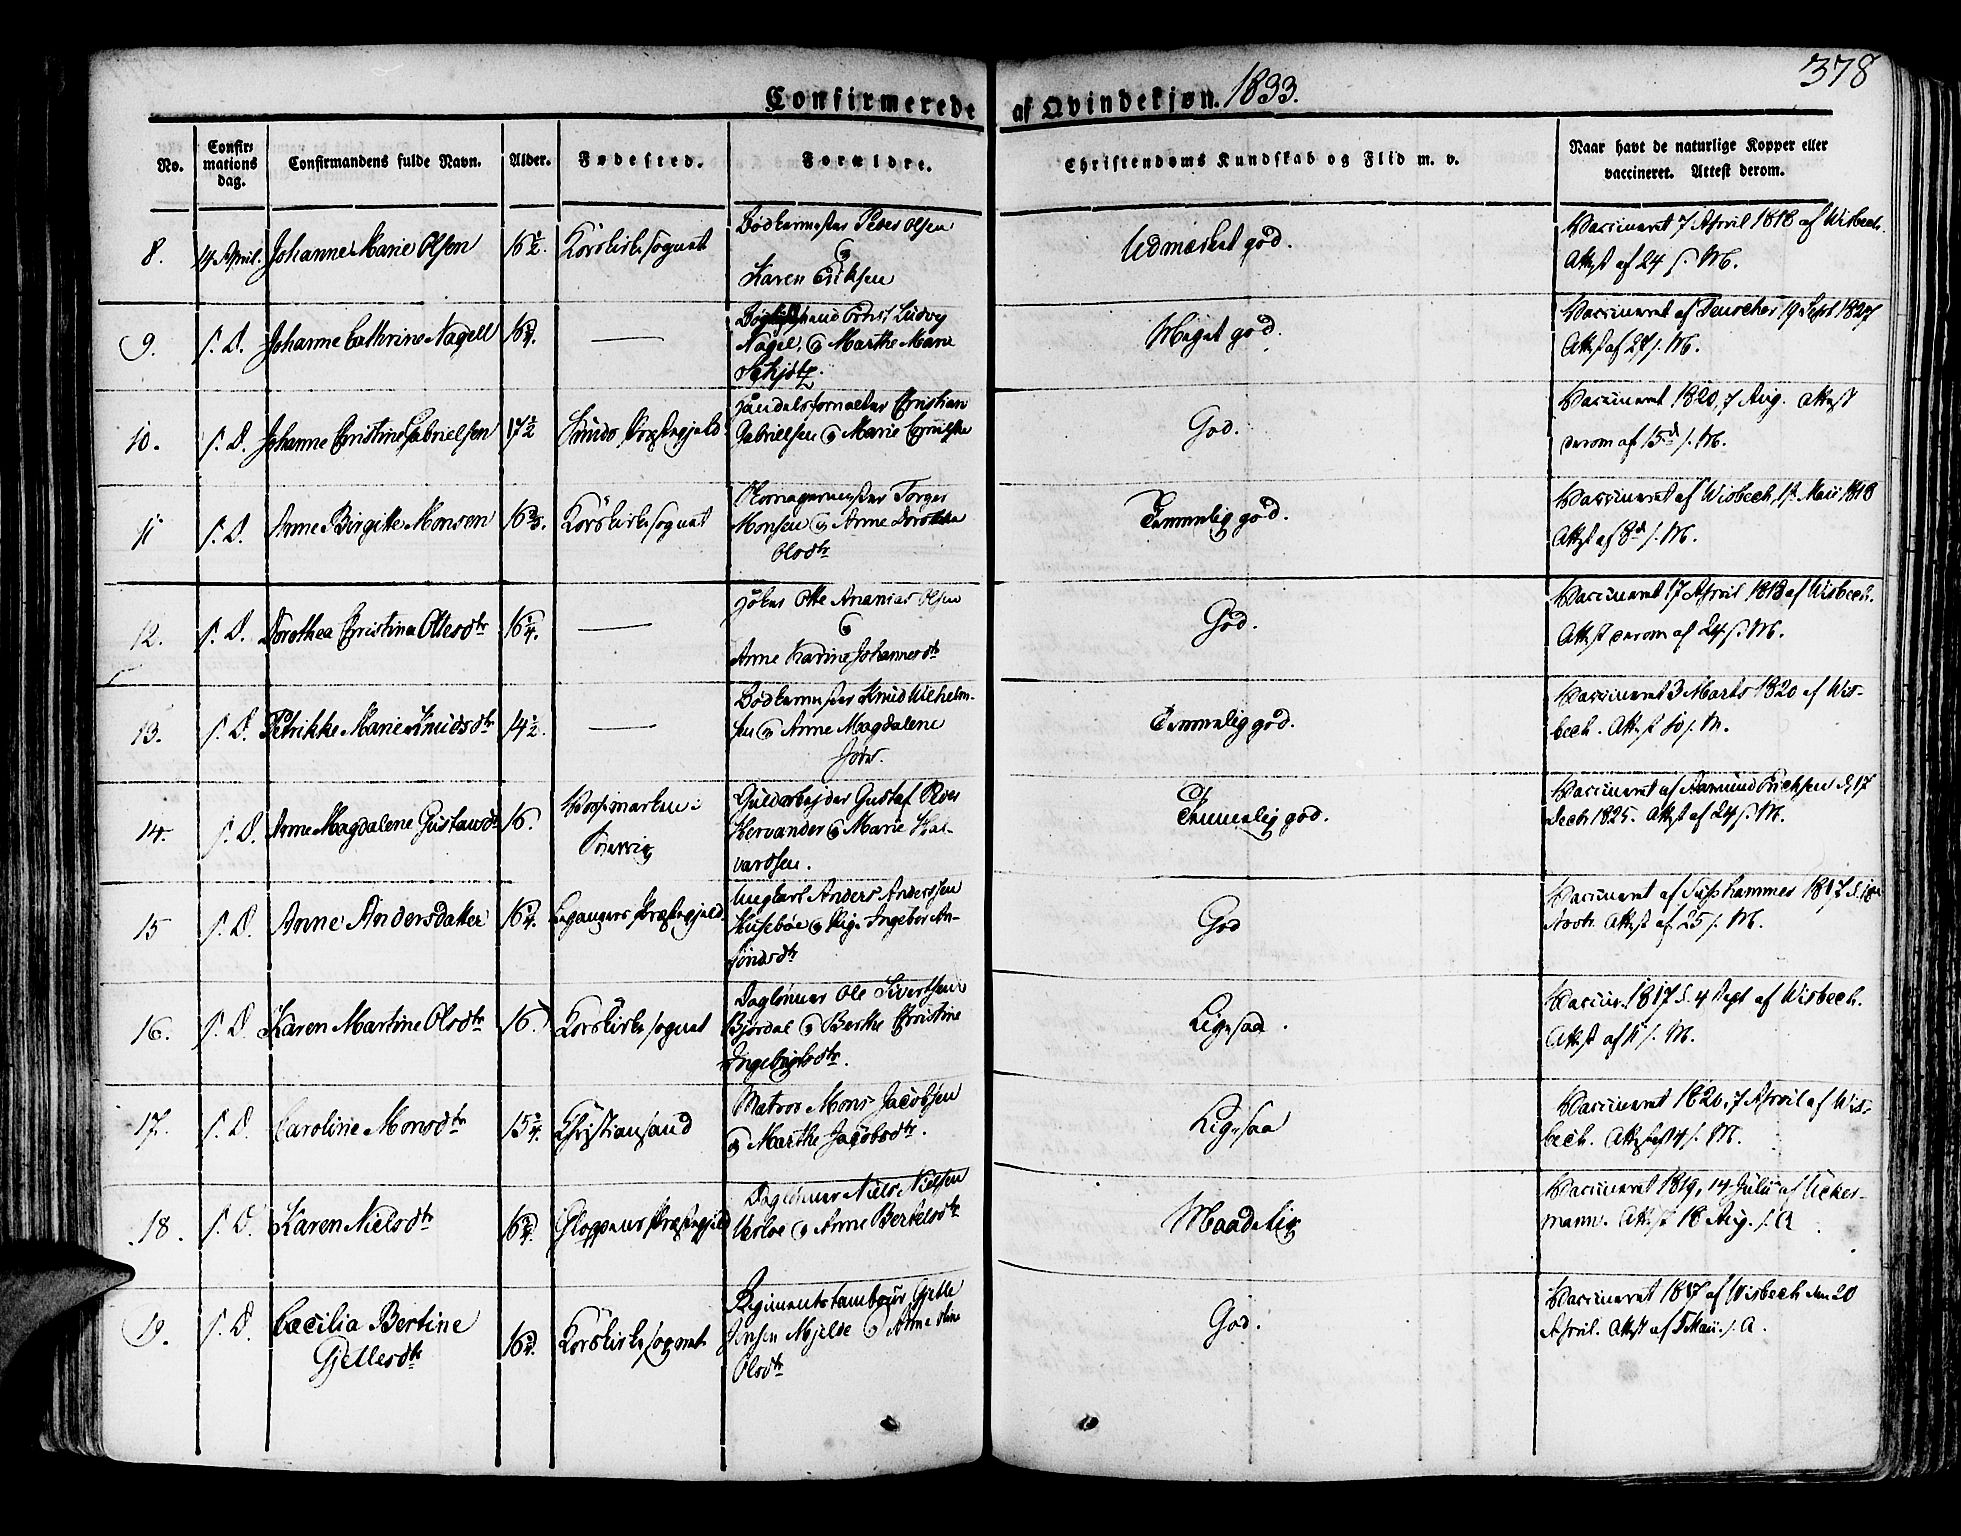 378
Confirmerede af Qvindekjøn. 1833.
No.
Confir-
mations
dag.
Confirmandens fulde Navn.
Alder.
Fødested.
Forældre.
Christendoms Kundskab og Flid m. v.
Naar havt de naturlige Kopper eller
vaccineret. Attest derom.
8. 14 April. Johanne Marie Olsen 16½. Korskirkesognet
Bødkermester Peder Olsen
&
Karen Eriksen
Udmærket god.
Vaccineret 7 April 1818 af Wisbech.
Attest af 24 s. M.
9. s. D. Johanne Cathrine Nagell 16¾.
Ernst Ludvig
Nagel, & Marthe Marie
Meget god.
Vaccineret af 19 Sept 1827
Attest af 24 s. M.
10. s. D. Johanne Christine Gabrielsen 17½ Præstegjeld
Christian
Gabrielsen & Marie
God.
Vaccineret 1820, 7 Aug. Attest
derom af 15de s. M.
11 s. D. Anne Birgitte Monsen 16 Korskirkesognet
Torger
Monsen & Anne Dorothea
Olsdtr
Temmelig god.
Vaccineret af Wisbech, 1st Maii 1818
Attest af 8de s. M.
12. s. D. Dorothea Christina Ottesdtr 16¼.
Otte Ananias Olsen
&
Anne Karine Johannesdtr
God.
Vaccineret 17 April 1818 af Wisbech.
Attest derom af 24 s. M.
13. s. D. Petrikke Marie Knudsdtr 14½.
Bødkermester Knud Wilhelm-
sen & Anne Magdalene
Temmelig god.
Vaccineret 3 Marts 1820 af Wis-
bech. Attest s. M.
14. s. D. Anne Magdalene Gustavsdtr 16.
Guldarbejder Gustaf Peder
Kervander & Marie Hal-
vardsen.
Temmelig god.
Vaccineret af Aamund Erichsen d. 17
Decbr 1825. Attest af 24 s. M.
15 s. D. Anne Andersdatter 16¾. Præstegjeld
Ungkarl Anders Andersen
Husebøe & Pige Ingebor An-
God
Vaccineret af 1817 d.
Novbr. Attest af 25 s. M.
16. s. D. Karen Martine Olsdtr 16. Korskirkesognet
Daglønner Ole Sivertsen
Bjørdal & Berthe Christine
Ingebrigtsdtr.
Ligesaa.
Vaccin. 1817 d. 4 Sept af Wisbech.
Attest af 11 s. M.
17. s. D. Caroline Monsdtr 15¾. Christiansand
Matros Mons Jacobsen
& Marthe Jacobsdtr.
Ligesaa
Vaccineret 1820, 7 April af Wis-
bech. Attest af 14 s. M.
18. s. D. Karen Nielsdtr 16¾. Gloppens Præstegjeld
Daglønner Niels Nielsen
& Anne Bertelsdtr
Maadelig
Vaccineret 1819, 14 Julii af Ucker-
mann. Attest 18 Aug. s. A
19. s. D. Cæcilia Bertine
Gjellesdtr 16¾. Korskirkesognet
Regimentstambour Gjelle
Jensen Mjelde & Anne
Olsdtr
God.
Vaccineret 1817 af Wisbech den 20
April. Attest af 5 Maii. s. A.